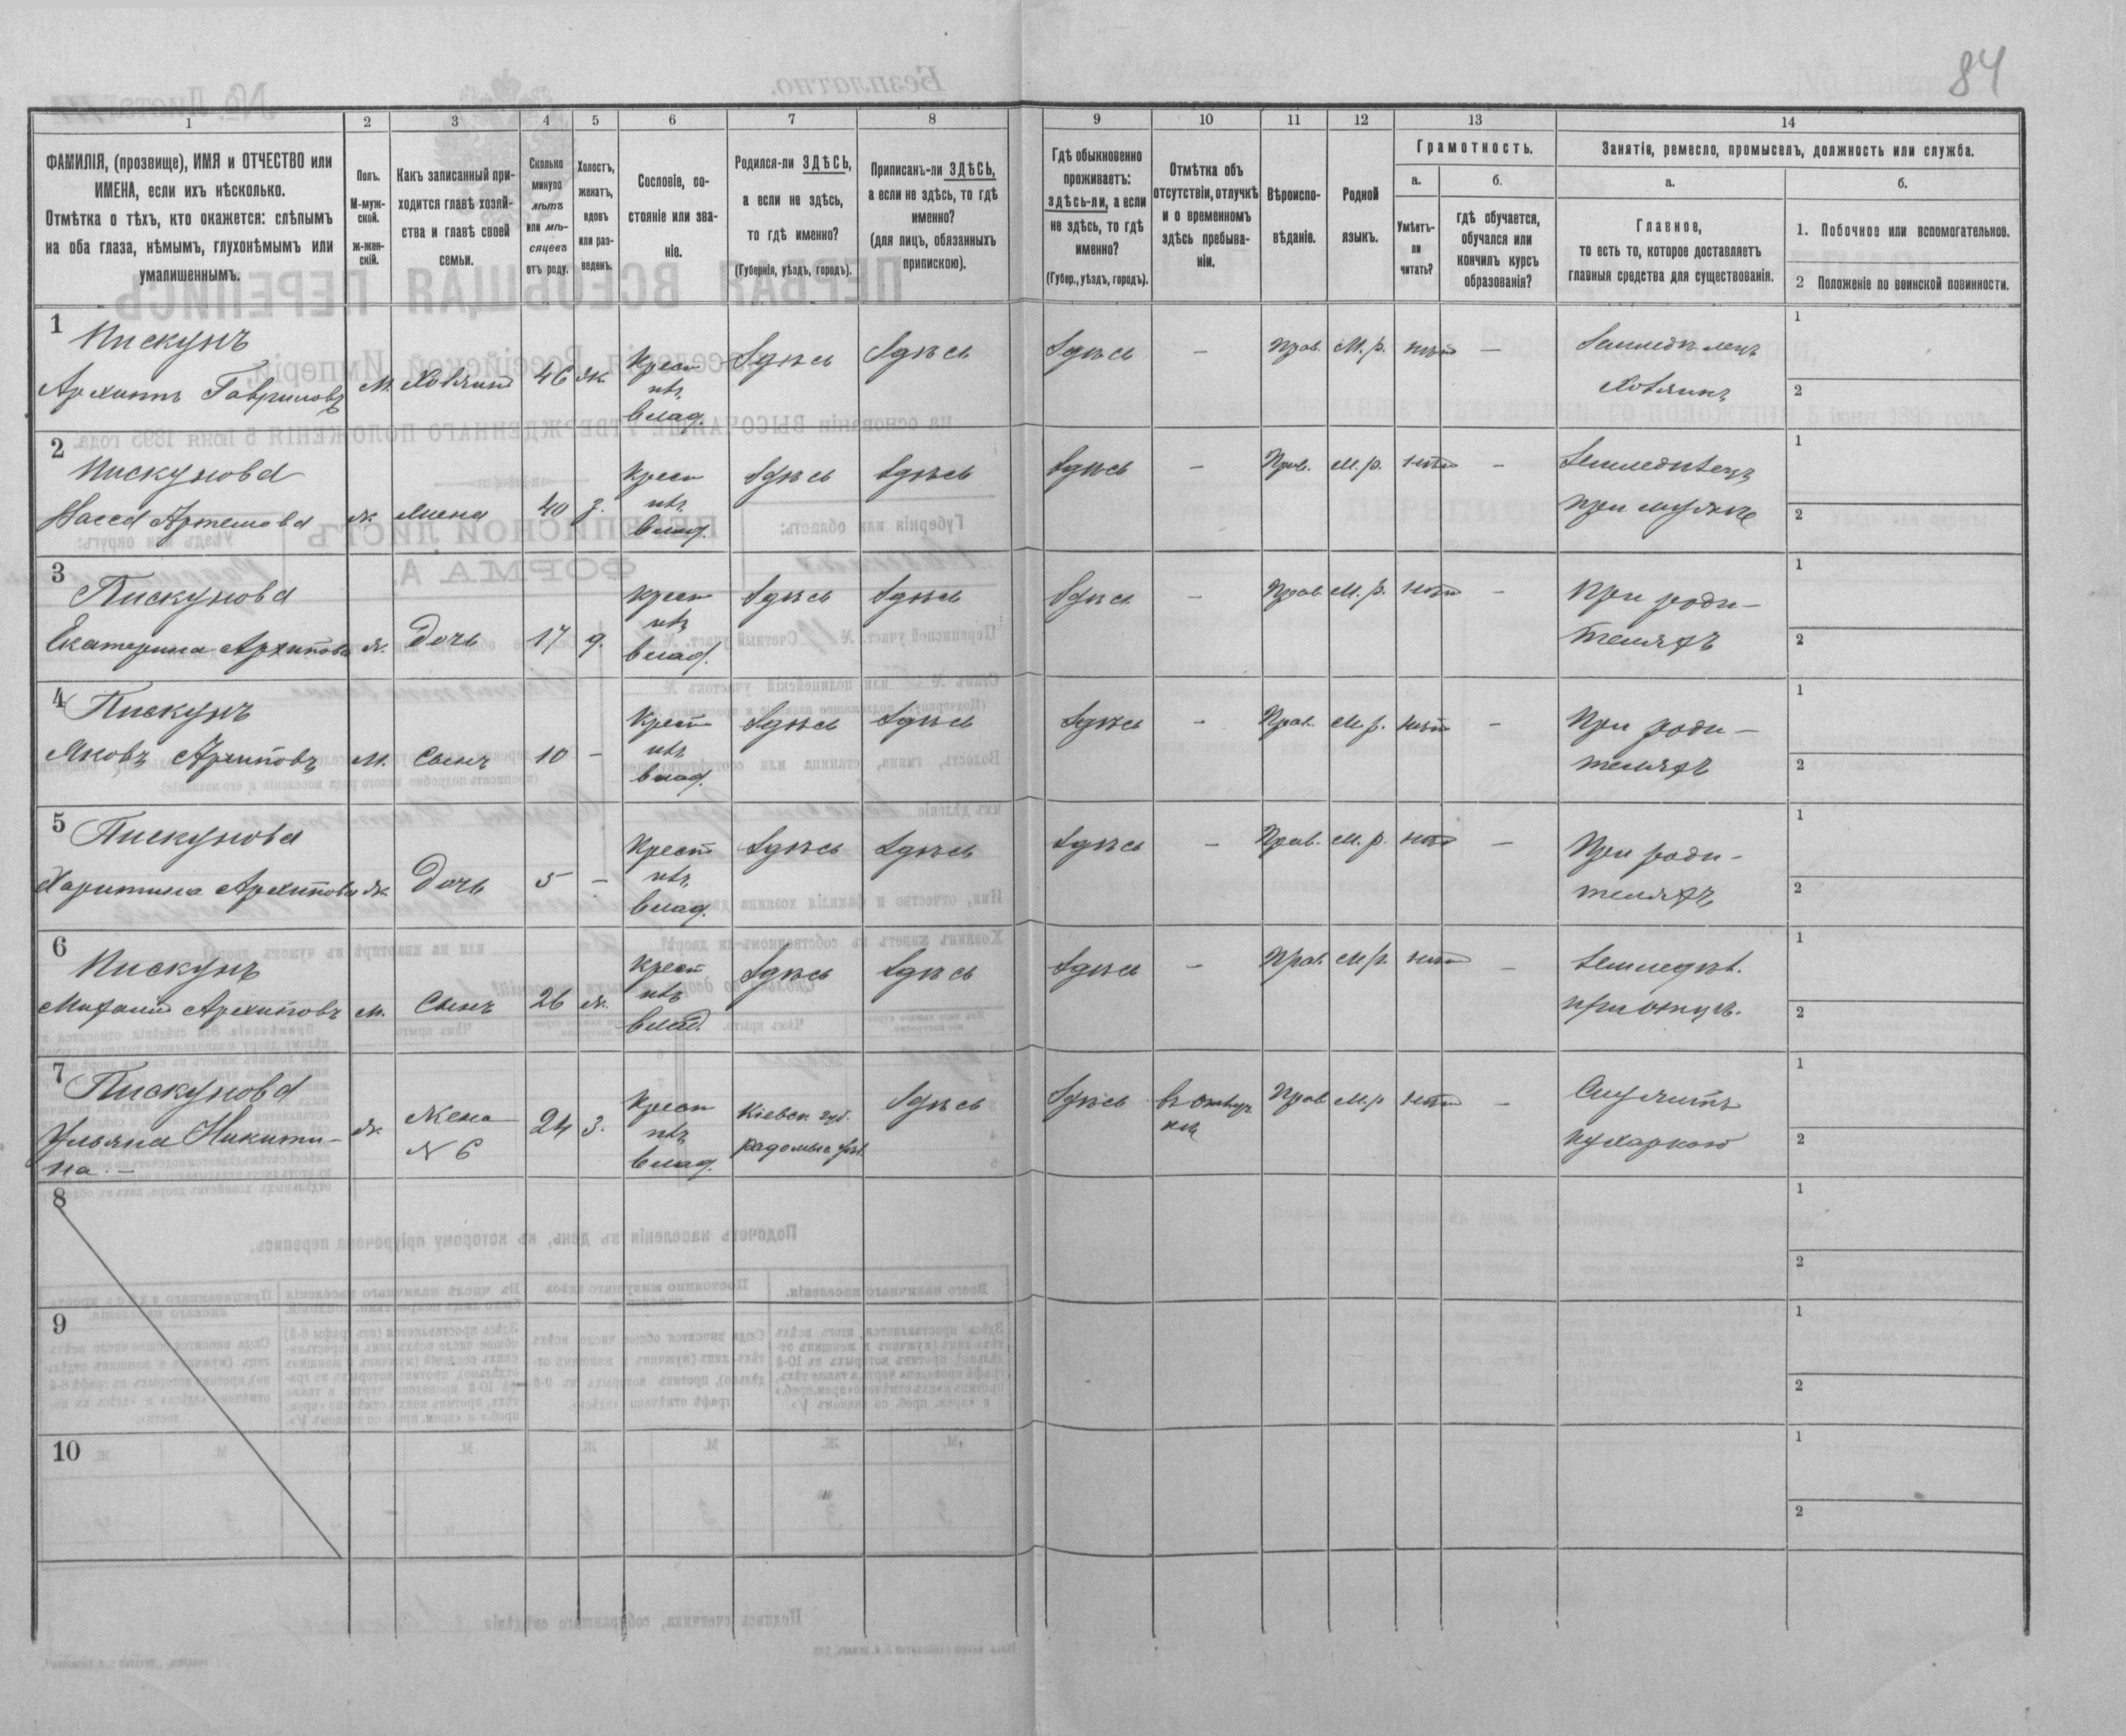 84
1 2 3 4 5 6 7 8 9 10 11 12 13 14
ФАМИЛІЯ, (прозвище), ИМЯ и ОТЧЕСТВО или
ИМЕНА, если ихъ нѣсколько.
Отмѣтка о тѣхъ, кто окажется: слѣпымъ
на оба глаза, нѣмымъ, глухонѣмымъ или
умалишеннымъ.
Полъ.
М-муж-
ской.
Ж-жен-
скій.
Какъ записанный при-
ходится главѣ хозяй-
ства и главѣ своей
семьи.
Сколько
минуло
лѣтъ
или мѣ-
сяцевъ
отъ роду.
Холостъ,
женатъ,
вдовъ
или раз-
веденъ.
Сословіе, со-
стояніе или зва-
ніе.
Родился-ли ЗДѢСЬ,
а если не здѣсь,
то гдѣ именно?
(Губернія, уѣздъ, городъ).
Приписанъ-ли ЗДѢСЬ,
а если не здѣсь, то гдѣ
именно?
(для лицъ, обязанныхъ
припискою).
Гдѣ обыкновенно
проживаетъ:
здѣсь-ли, а если
не здѣсь, то гдѣ
именно?
(Губер., уѣздъ, городъ).
Отмѣтка объ
отсутствіи, отлучкѣ
и о временномъ
здѣсь пребыва-
ніи.
Вѣроиспо-
вѣданіе.
Родной
языкъ.
Грамотность.
а.
Умѣетъ-
ли
читать?
б.
гдѣ обучается,
обучался или
кончилъ курсъ
образованія?
Занятіе, ремесло, промыселъ, должность или служба.
а.
Главное,
то есть то, которое доставляетъ
главныя средства для существованія.
б.
1. Побочное или вспомогательное.
2 Положеніе по воинской повинности.
1 Пискунъ
Архипъ Гавриловъ М. Хозяинъ 46 ж. Крест. изъ влад. Здѣсь Здѣсь Здѣсь — Прав. М. р. нѣтъ — Земледѣлецъ
Хозяинъ
1
2
2 Пискунова
Насса Артемова ж. Жена 40 з. Крест. изъ влад. Здѣсь Здѣсь Здѣсь — Прав. М. р. нѣтъ — Земледѣлецъ
при мужѣ
1
2
3 Пискунова
Екатерина Архипова ж. Дочь 17 д. Крест. изъ влад. Здѣсь Здѣсь Здѣсь — Прав. М. р. нѣтъ — При роди-
теляхъ
1
2
4 Пискунъ
Яковъ Архиповъ М. Сынъ 10 — Крест. изъ влад. Здѣсь Здѣсь Здѣсь — Прав. М. р. нѣтъ — При роди-
теляхъ
1
2
5 Пискунова
Харитина Архипова ж. Дочь 5 — Крест. изъ влад. Здѣсь Здѣсь Здѣсь — Прав. М. р. нѣтъ — При роди-
теляхъ
1
2
6 Пискунъ
Михаилъ Архиповъ М. Сынъ 26 ж. Крест. изъ влад. Здѣсь Здѣсь Здѣсь — Прав. М. р. нѣтъ — Земледѣл.
при отцѣ.
1
2
7 Пискунова
Ульяна Никити-
на — ж. Жена
№ 6 24 з. Крест. изъ влад. Кіевск. губ.
Радомысл. уѣз. Здѣсь Здѣсь въ отлуч
кѣ Прав. М. р. нѣтъ — Служитъ
кухаркою
1
2
8
1
2
9
1
2
10
1
2